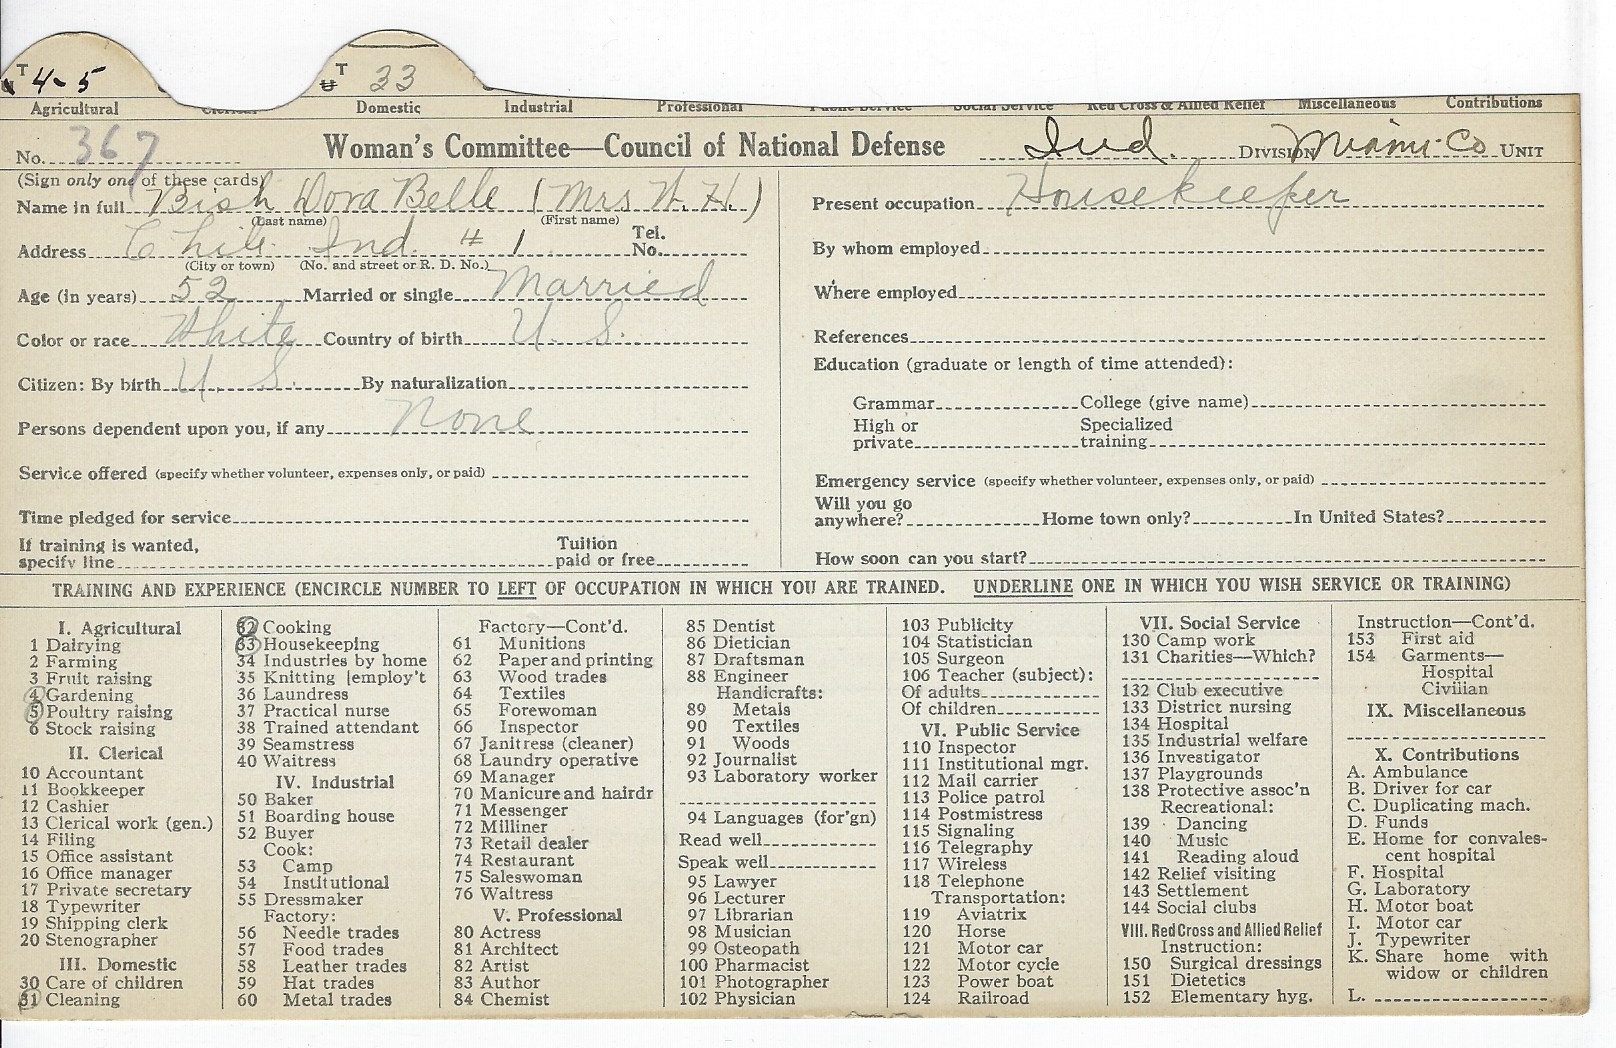 T 4-5 U T 33
Agricultural Clerical Domestic Industrial Professional Public Service Social Service Red Cross & Allied Relief Miscellaneous Contributions
No. 367 Woman's Committee—Council of National Defense Ind. DIVISION Miami Co UNIT
(Sign only one of these cards)
Name in full Bish Dora Belle (Mrs W. H.)
(Last name) (First name)
Address Chili Ind. # 1 Tel. No.
(City or town) (No. and street or R. D. No.)
Age (in years) 52 Married or single Married
Color or race White Country of birth U. S.
Citizen: By birth U. S. By naturalization
Persons dependent upon you, if any None
Service offered (specify whether volunteer, expenses only, or paid)
Time pledged for service
If training is wanted,
specify line Tuition paid or free
Present occupation Housekeeper
By whom employed
Where employed
References
Education (graduate or length of time attended):
Grammar College (give name)
High or private Specialized training
Emergency service (specify whether volunteer, expenses only, or paid)
Will you go anywhere? Home town only? In United States?
How soon can you start?
TRAINING AND EXPERIENCE (ENCIRCLE NUMBER TO LEFT OF OCCUPATION IN WHICH YOU ARE TRAINED. UNDERLINE ONE IN WHICH YOU WISH SERVICE OR TRAINING)
I. Agricultural
1 Dairying
2 Farming
3 Fruit raising
4 Gardening
5 Poultry raising
6 Stock raising
II. Clerical
10 Accountant
11 Bookkeeper
12 Cashier
13 Clerical work (gen.)
14 Filing
15 Office assistant
16 Office manager
17 Private secretary
18 Typewriter
19 Shipping clerk
20 Stenographer
III. Domestic
30 Care of children
31 Cleaning
32 Cooking
33 Housekeeping
34 Industries by home
35 Knitting [employ't
36 Laundress
37 Practical nurse
38 Trained attendant
39 Seamstress
40 Waitress
IV. Industrial
50 Baker
51 Boarding house
52 Buyer
Cook:
53 Camp
54 Institutional
55 Dressmaker
Factory:
56 Needle trades
57 Food trades
58 Leather trades
59 Hat trades
60 Metal trades
Factory—Cont'd.
61 Munitions
62 Paper and printing
63 Wood trades
64 Textiles
65 Forewoman
66 Inspector
67 Janitress (cleaner)
68 Laundry operative
69 Manager
70 Manicure and hairdr
71 Messenger
72 Milliner
73 Retail dealer
74 Restaurant
75 Saleswoman
76 Waitress
V. Professional
80 Actress
81 Architect
82 Artist
83 Author
84 Chemist
85 Dentist
86 Dietician
87 Draftsman
88 Engineer
Handicrafts:
89 Metals
90 Textiles
91 Woods
92 Journalist
93 Laboratory worker
94 Languages (for'gn)
Read well
Speak well
95 Lawyer
96 Lecturer
97 Librarian
98 Musician
99 Osteopath
100 Pharmacist
101 Photographer
102 Physician
103 Publicity
104 Statistician
105 Surgeon
106 Teacher (subject):
Of adults
Of children
VI. Public Service
110 Inspector
111 Institutional mgr.
112 Mail carrier
113 Police patrol
114 Postmistress
115 Signaling
116 Telegraphy
117 Wireless
118 Telephone
Transportation:
119 Aviatrix
120 Horse
121 Motor car
122 Motor cycle
123 Power boat
124 Railroad
VII. Social Service
130 Camp work
131 Charities—Which?
132 Club executive
133 District nursing
134 Hospital
135 Industrial welfare
136 Investigator
137 Playgrounds
138 Protective assoc'n
Recreational:
139 Dancing
140 Music
141 Reading aloud
142 Relief visiting
143 Settlement
144 Social clubs
VIII. Red Cross and Allied Relief
Instruction:
150 Surgical dressings
151 Dietetics
152 Elementary hyg.
Instruction—Cont'd.
153 First aid
154 Garments—
Hospital
Civilian
IX. Miscellaneous
X. Contributions
A. Ambulance
B. Driver for car
C. Duplicating mach.
D. Funds
E. Home for convales-
cent hospital
F. Hospital
G. Laboratory
H. Motor boat
I. Motor car
J. Typewriter
K. Share home with
widow or children
L.